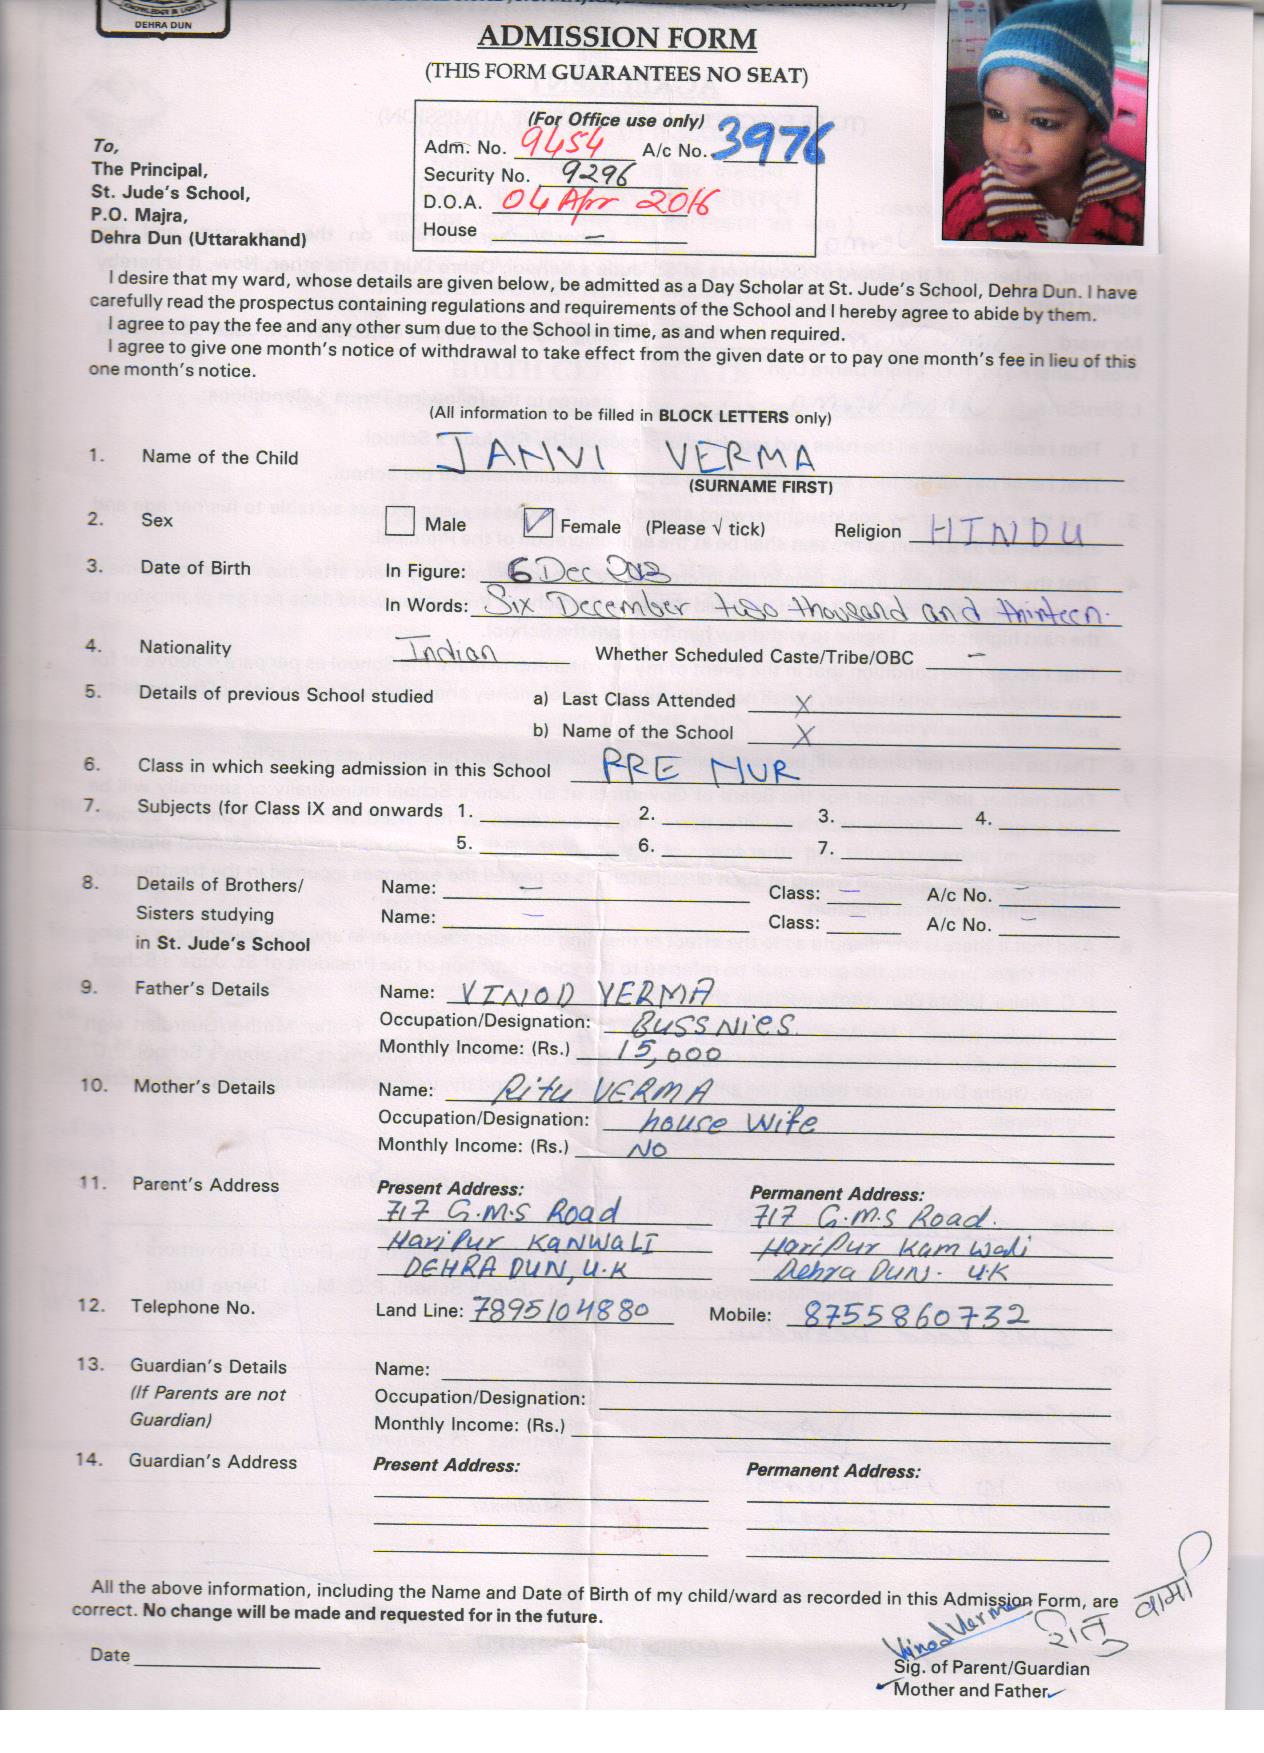 DEHRA DUN
ADMISSION FORM
(THIS FORM GUARANTEES NO SEAT)
(For Office use only)
Adm. No. 9454 A/c No. 3976
Security No. 9296
D.O.A. 04 Apr 2016
House –
To,
The Principal,
St. Jude's School,
P.O. Majra,
Dehra Dun (Uttarakhand)
I desire that my ward, whose details are given below, be admitted as a Day Scholar at St. Jude's School, Dehra Dun. I have
carefully read the prospectus containing regulations and requirements of the School and I hereby agree to abide by them.
I agree to pay the fee and any other sum due to the School in time, as and when required.
I agree to give one month's notice of withdrawal to take effect from the given date or to pay one month's fee in lieu of this
one month's notice.
(All information to be filled in BLOCK LETTERS only)
1. Name of the Child JANVI VERMA
(SURNAME FIRST)
2. Sex Male ✓ Female (Please √ tick) Religion HINDU
3. Date of Birth In Figure: 6 Dec 2013
In Words: Six December two thousand and thirteen.
4. Nationality Indian Whether Scheduled Caste/Tribe/OBC –
5. Details of previous School studied a) Last Class Attended X
b) Name of the School X
6. Class in which seeking admission in this School PRE NUR
7. Subjects (for Class IX and onwards 1. 2. 3. 4.
5. 6. 7.
8. Details of Brothers/ Name: – Class: – A/c No. –
Sisters studying Name: – Class: A/c No. –
in St. Jude's School
9. Father's Details Name: VINOD VERMA
Occupation/Designation: BUSSNIES.
Monthly Income: (Rs.) 15,000
10. Mother's Details Name: Ritu VERMA
Occupation/Designation: house wife
Monthly Income: (Rs.) NO
11. Parent's Address Present Address: Permanent Address:
717 G.M.S Road 717 G.M.S Road.
HariPur KANWALI HariPur Kamwali
DEHRA DUN, U.K Dehra DUN. U.K
12. Telephone No. Land Line: 7895104880 Mobile: 8755860732
13. Guardian's Details Name:
(If Parents are not Occupation/Designation:
Guardian) Monthly Income: (Rs.)
14. Guardian's Address Present Address: Permanent Address:
All the above information, including the Name and Date of Birth of my child/ward as recorded in this Admission Form, are
correct. No change will be made and requested for in the future.
Vinod Verma
Date
Sig. of Parent/Guardian
Mother and Father